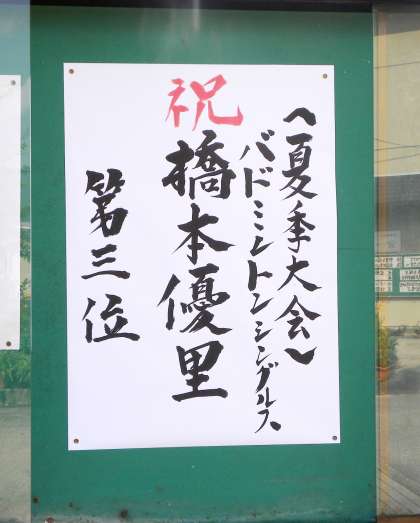 （夏季大会）
バドミントンシングルス
祝
橋本優里
第三位